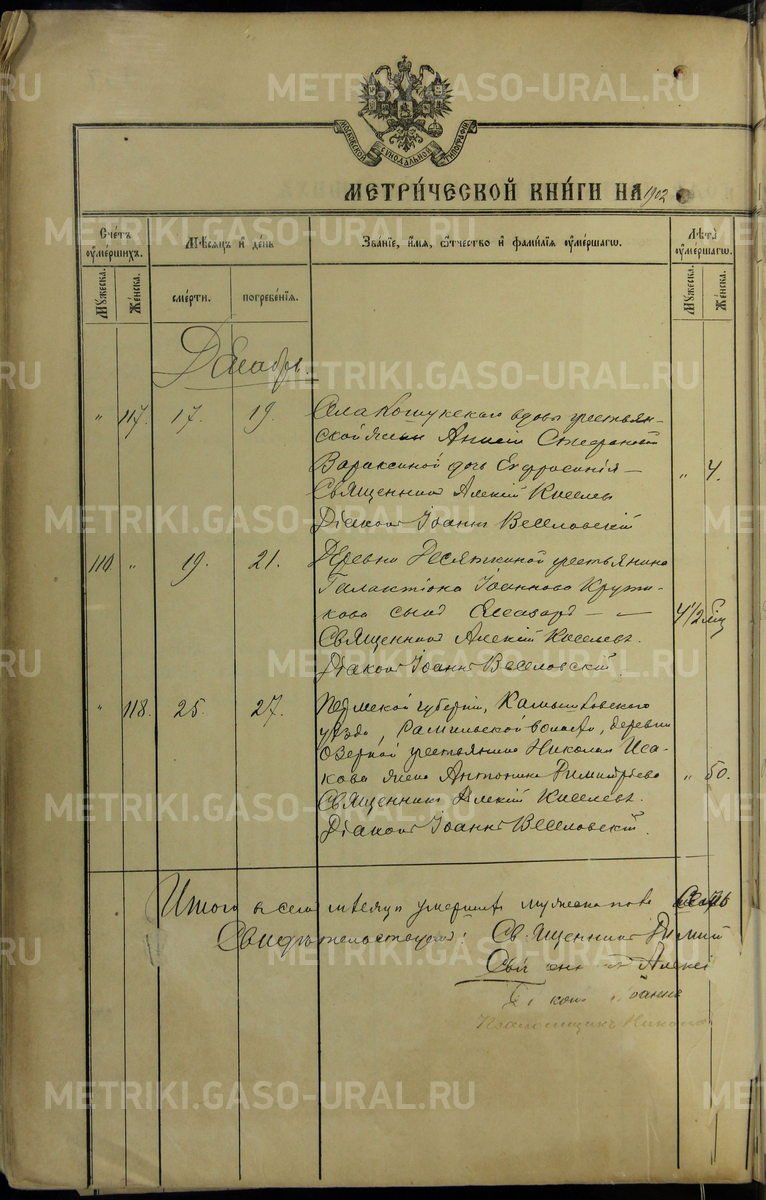 METRIKI.GASO-URAL.RU
МОСКОВСКОЙ СѴНОДАЛЬНОЙ ТИПОГРАФІИ
МЕТРИ́ЧЕСКОЙ КНИ́ГИ НА 1902
Сче́тъ ᲂу҆ме́ршихъ.
Мѣ́сяцъ и҆ де́нь
Зва́нїе, и҆́мя, ѻ҆́тчество и҆ фами́лїя ᲂу҆ме́ршагѡ.
Лѣ́та ᲂу҆ме́ршагѡ.
Мꙋ́жеска.
Же́нска.
сме́рти.
погребе́нїя.
Мꙋ́жеска.
Же́нска.
Декабрь.
" 117. 17. 19. Села Кошукскаго вдовы крестьян-
ской жены Анисіи Стефановой
Вараксиной дочь Евфросинія — " 4.
Священникъ Алексій Киселевъ
Діаконъ Іоаннъ Веселовскій
110 " 19. 21. Деревни Десяткиной крестьянина
Галактіона Іоаннова Крути-
кова сынъ Елеазаръ — — 4 1/2 мѣц
Священникъ Алексій Киселевъ.
Діаконъ Іоаннъ Веселовскій.
" 118. 25. 27. Пермской губерніи, Камышловскаго
уѣзда, волости, деревни
Озерной крестьянина Николая Иса-
кова жена Антонина Димитріева " 50.
Священникъ Алексій Киселевъ.
Діаконъ Іоаннъ Веселовскій.
Итого въ семъ мѣсяцѣ умершихъ мужеска пола
Свидѣтельствуютъ: Священникъ
Священникъ Алексій
Діаконъ Іоаннъ
Псаломщикъ Никола